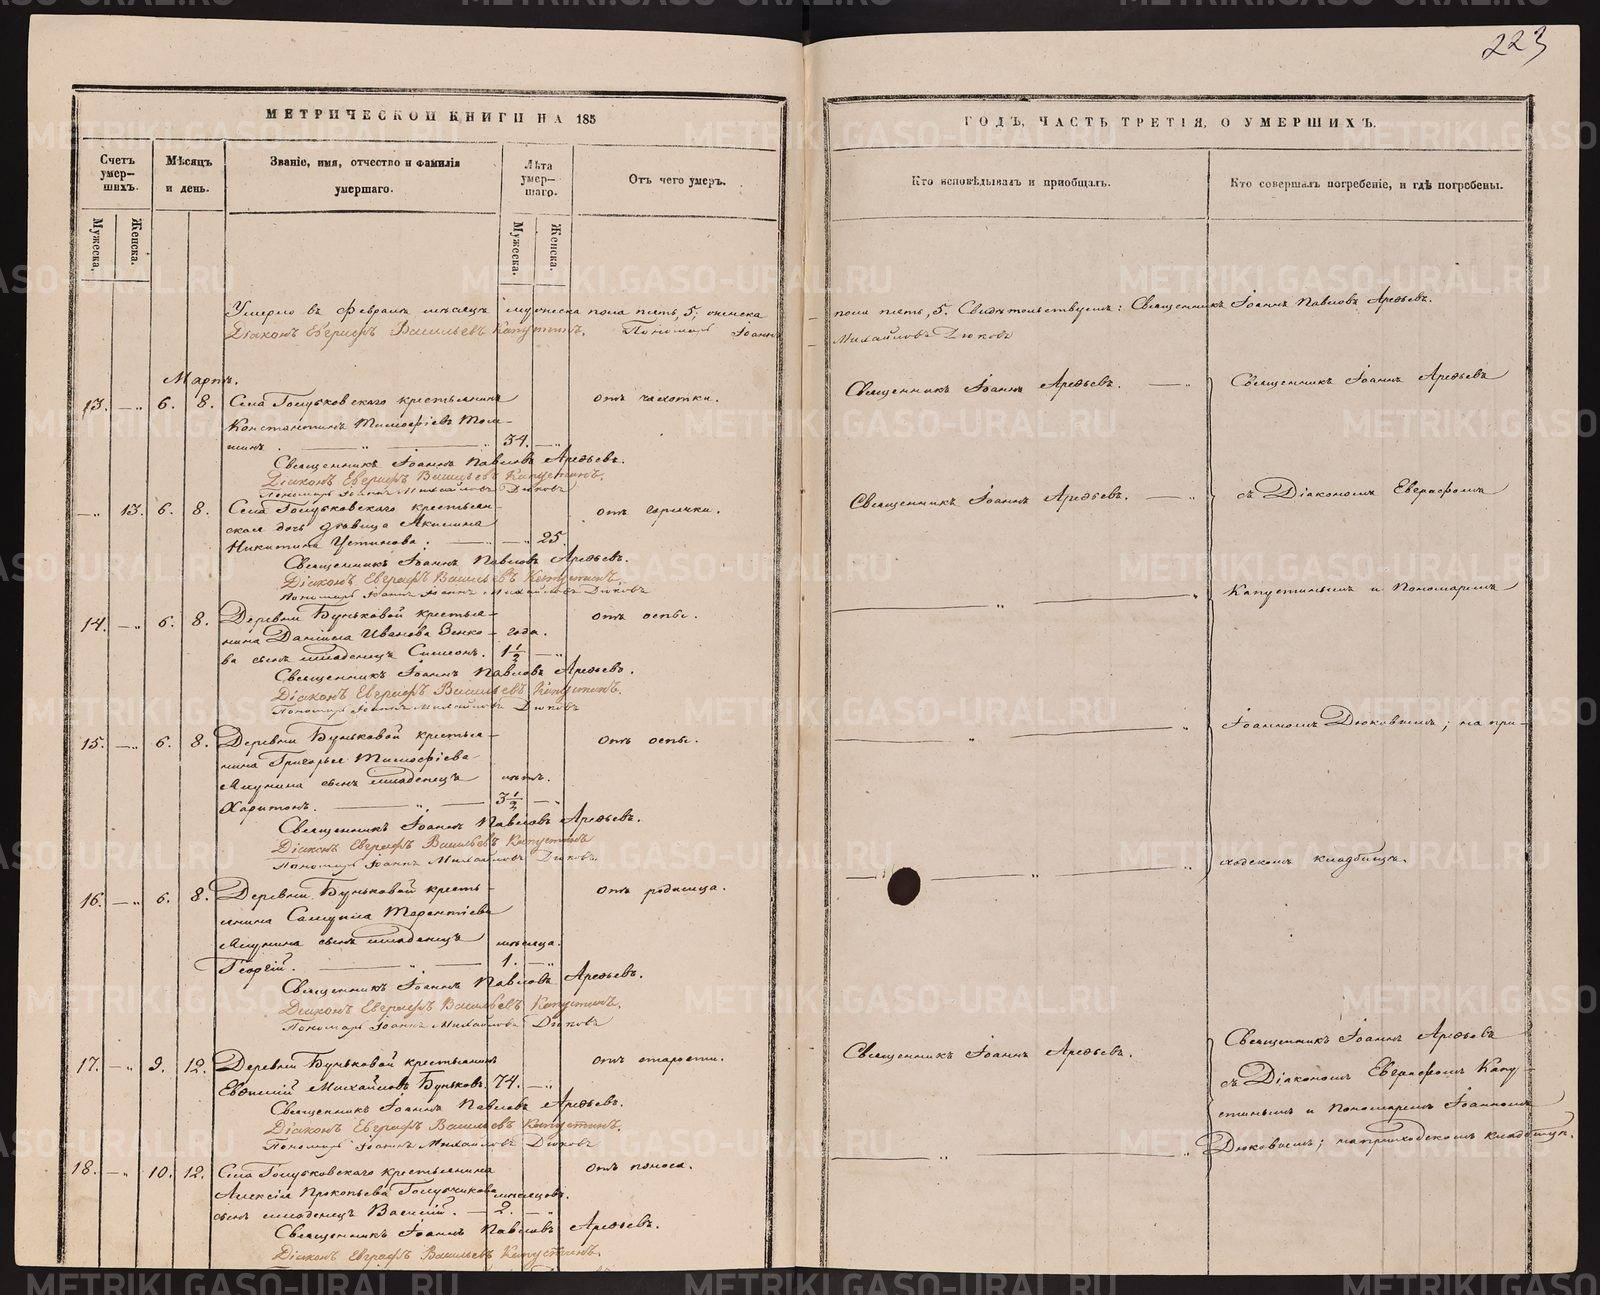 223
МЕТРИЧЕСКОЙ КНИГИ НА 185
Счетъ умер-шихъ.
Мѣсяцъ и день.
Званіе, имя, отчество и фамилія умершаго.
Лѣта умер-шаго.
Отъ чего умеръ.
Мужеска.
Женска.
Мужеска.
Женска.
Умерло въ Февралѣ мѣсяцѣ мужеска пола пять, 5, женска
Діаконъ Евграфъ Васильевъ Капустинъ. Пономарь Іоаннъ
Мартъ.
13. —„ 6. 8. Села Голубковскаго крестьянинъ отъ чахотки.
Константинъ Тимофѣевъ
34. —„
Священникъ Іоаннъ Павловъ Арефьевъ.
Діаконъ Евграфъ Васильевъ Капустинъ.
Пономарь Іоаннъ Михайловъ Дюковъ
—„ 13. 6. 8. Села Голубковскаго крестьян- отъ горячки.
ская дочь дѣвица Акилина
Никитина Устинова. —„ 25.
Священникъ Іоаннъ Павловъ Арефьевъ.
Діаконъ Евграфъ Васильевъ Капустинъ.
Пономарь Іоаннъ Михайловъ Дюковъ
14. —„ 6. 8. Деревни Буньковой крестья- отъ оспы.
нина Даніила Иванова Зенко- года.
ва сынъ младенецъ Симеонъ. 1½ —„
Священникъ Іоаннъ Павловъ Арефьевъ.
Діаконъ Евграфъ Васильевъ Капустинъ.
Пономарь Іоаннъ Михайловъ Дюковъ
15. —„ 6. 8. Деревни Буньковой крестья- отъ оспы.
нина Григорья Тимофѣева
Ялунина сынъ младенецъ лѣтъ.
Харитонъ. —„— 3½ —„
Священникъ Іоаннъ Павловъ Арефьевъ.
Діаконъ Евграфъ Васильевъ Капустинъ
Пономарь Іоаннъ Михайловъ Дюковъ.
16. —„ 6. 8. Деревни Буньковой кресть- отъ родимца.
янина Самуила Терентіева
Ялунина сынъ младенецъ мѣсяца.
Георгій. —„— 1. —„
Священникъ Іоаннъ Павловъ Арефьевъ.
Діаконъ Евграфъ Васильевъ Капустинъ.
Пономарь Іоаннъ Михайловъ Дюковъ
17. —„ 9. 12. Деревни Буньковой крестьянинъ отъ старости.
Евфимій Михайловъ Буньковъ. 74. —„
Священникъ Іоаннъ Павловъ Арефьевъ.
Діаконъ Евграфъ Васильевъ Капустинъ.
Пономарь Іоаннъ Михайловъ Дюковъ
18. —„ 10. 12. Села Голубковскаго крестьянина отъ поноса.
Алексія Прокопьева Голубчикова мѣсяцовъ.
сынъ младенецъ Василій. — 2. —„
Священникъ Іоаннъ Павловъ Арефьевъ.
Діаконъ Евграфъ Васильевъ Капустинъ.
ГОДЪ, ЧАСТЬ ТРЕТІЯ, О УМЕРШИХЪ.
Кто исповѣдывалъ и пріобщалъ.
Кто совершалъ погребеніе, и гдѣ погребены.
пола пять, 5. Свидѣтельствуемъ: Священникъ Іоаннъ Павловъ Арефьевъ.
Михайловъ Дюковъ
Священникъ Іоаннъ Арефьевъ. —„ Священникъ Іоаннъ Арефьевъ
Священникъ Іоаннъ Арефьевъ. —„ съ Діакономъ Евграфомъ
Капустинымъ и Пономаремъ
Іоанномъ Дюковымъ; на при-
ходскомъ кладбищѣ.
Священникъ Іоаннъ Арефьевъ. Священникъ Іоаннъ Арефьевъ
съ Діакономъ Евграфомъ Капу-
стинымъ и Пономаремъ Іоанномъ
Дюковымъ; на приходскомъ кладбищѣ.
METRIKI.GASO-URAL.RU